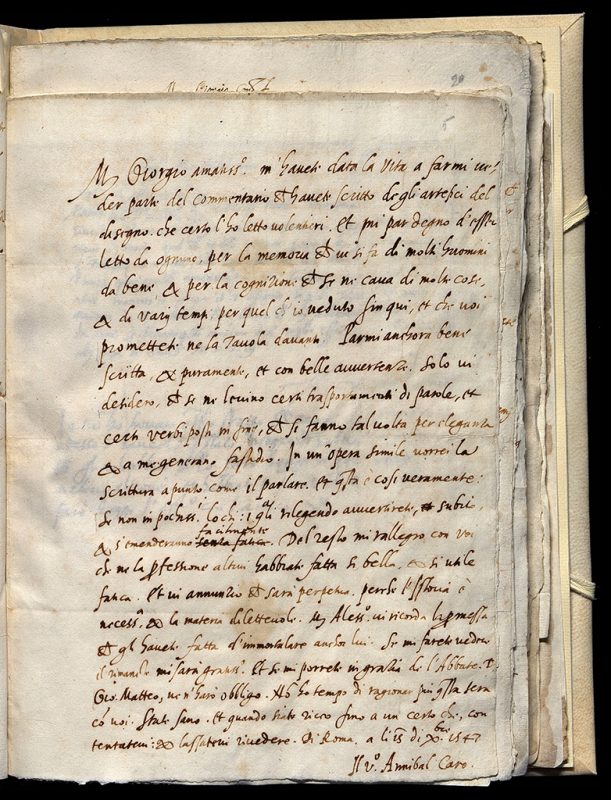 20
5
M. Giorgio amatiss.o m'havete data la vita a farmi ve/
der parte del Commentario ch'havete scritto degli artefici del
disegno. che certo l'ho letto volentieri. et mi par degno d'esser
letto da ognuno, per la memoria che vi si fa di molti huomini
da bene, & per la cognizione che se ne cava di molte cose,
& di varij tempi, per quel ch'io veduto sin qui, et che voi
promettete ne la Tavola davanti. Parmi anchora bene
scritta, & puramente, et con belle avvertenze. Solo vi
desidero, che se ne levino certi trasportamenti di parole, et
certi verbi posti in fine, che si fanno talvolta per eleganza
& a me generano fastidio. In un'opera simile vorrei la
scrittura apunto come il parlare. et q.sta è cosi veramente:
se non in pochiss.i lochi: i q.ali rilegendo avvertirete, et subito,
facilmente
& s'emenderanno senza fatica. Del resto mi rallegro con voi
che ne la p.fessione altrui habbiate fatta si bella, & si utile
fatica. Et vi annunzio che sarà perpetua, perche l'Istoria è
necess.a & la materia dilettevole. M. Aless.o vi ricorda la p.messa
che gl'havete fatta d'immortalare anchor lui. Se mi farete vedere
il rimanente mi sarà gratiss.o Et se mi porrete in gratia de l'Abbate. D.
Gio. Matteo, ve n'harò obbligo. Nō ho tempo di ragionar più q.sta sera
cō voi. State sano. et quando siate ricco fino a un certo che, con
tentatevi: & lassatevi rivedere. Di Roma. a li 15 di X.bre 1547
Il v.o Annibal Caro.